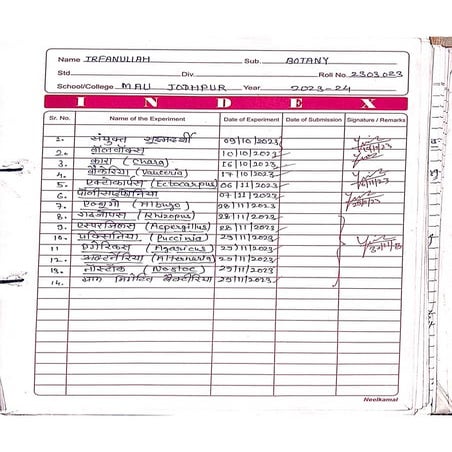 Name IRFANULLAH Sub. BOTANY
Std Div. Roll No. 2303023
School/College MAU JODHPUR Year 2023-24
INDEX
Sr. No. Name of the Experiment Date of Experiment Date of Submission Signature / Remarks
1. संयुक्त सूक्ष्मदर्शी 09/10/2023
2. वॉलवॉक्स 10/10/2023
3. कारा (Chara) 16/10/2023
4. वौकेरिया (Vaucheria) 17/10/2023
5. एक्टोकार्पस (Ectocarpus) 06/11/2023
6. पॉलीसाइफोनिया 07/11/2023
7. एल्बुगो (Albugo) 28/11/2023
8. राइजोपस (Rhizopus) 28/11/2023
9. एस्परजिलस (Aspergillus) 28/11/2023
10. पक्सिनिया (Puccinia) 29/11/2023
11. एगेरिकस (Agaricus) 29/11/2023
12. अल्टर्नेरिया (Alternaria) 29/11/2023
13. नॉस्टॉक (Nostoc) 29/11/2023
14. ग्राम निगेटिव बैक्टीरिया 29/11/2023
Neelkamal